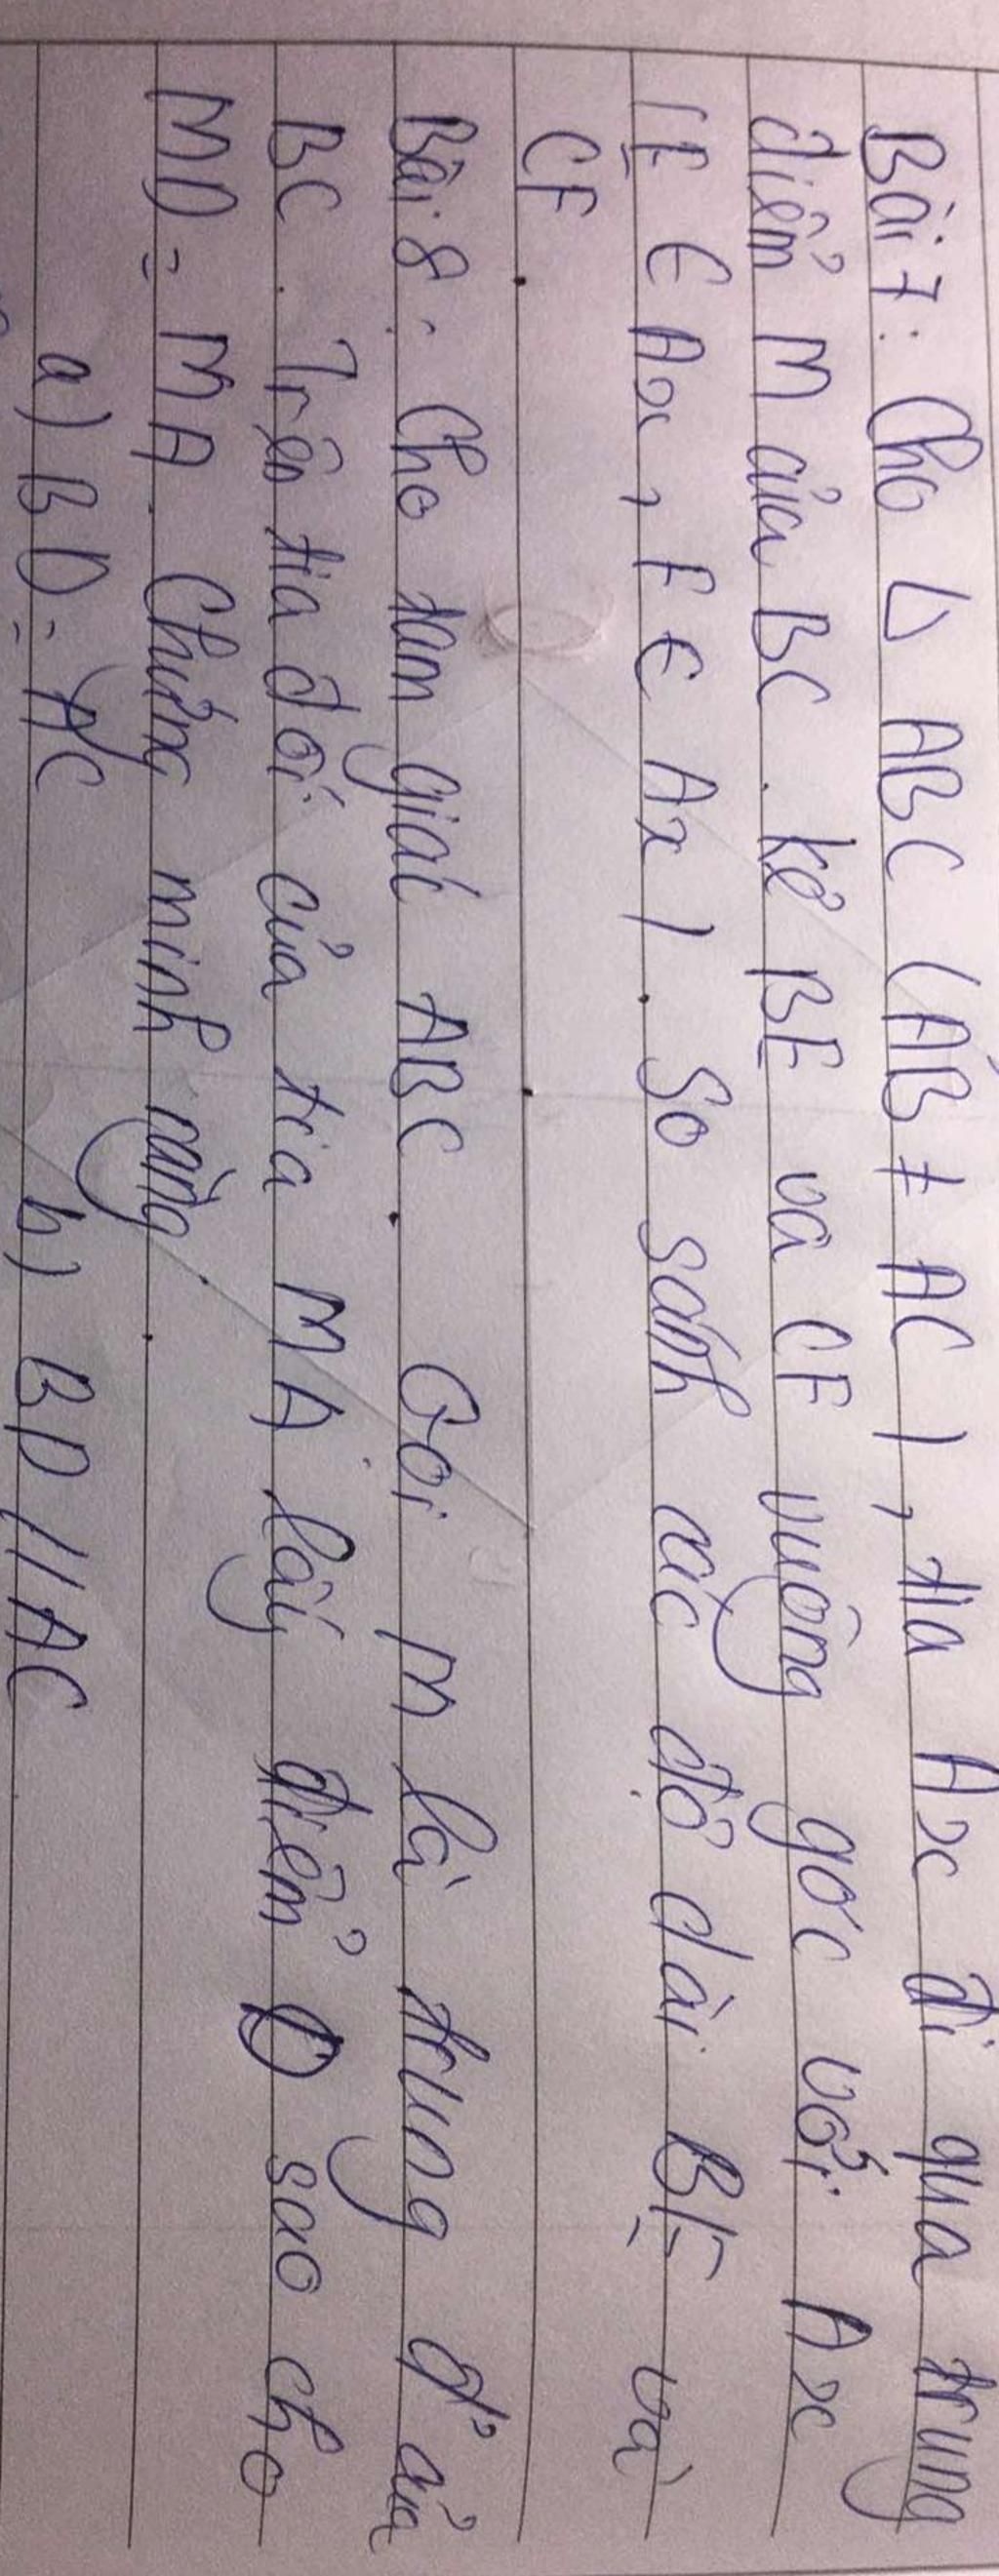 Bài 7: Cho Δ ABC (AB ≠ AC), tia Ax đi qua trung
điểm M của BC. kẻ BE và CF vuông góc với Ax
(E ∈ Ax, F ∈ Ax). So sánh các độ dài BE và
CF
Bài 8: Cho tam giác ABC. Gọi M là trung đ' của
BC. Trên tia đối của tia MA lấy điểm D sao cho
MD = MA. Chứng minh rằng.
a) BD = AC b) BD // AC